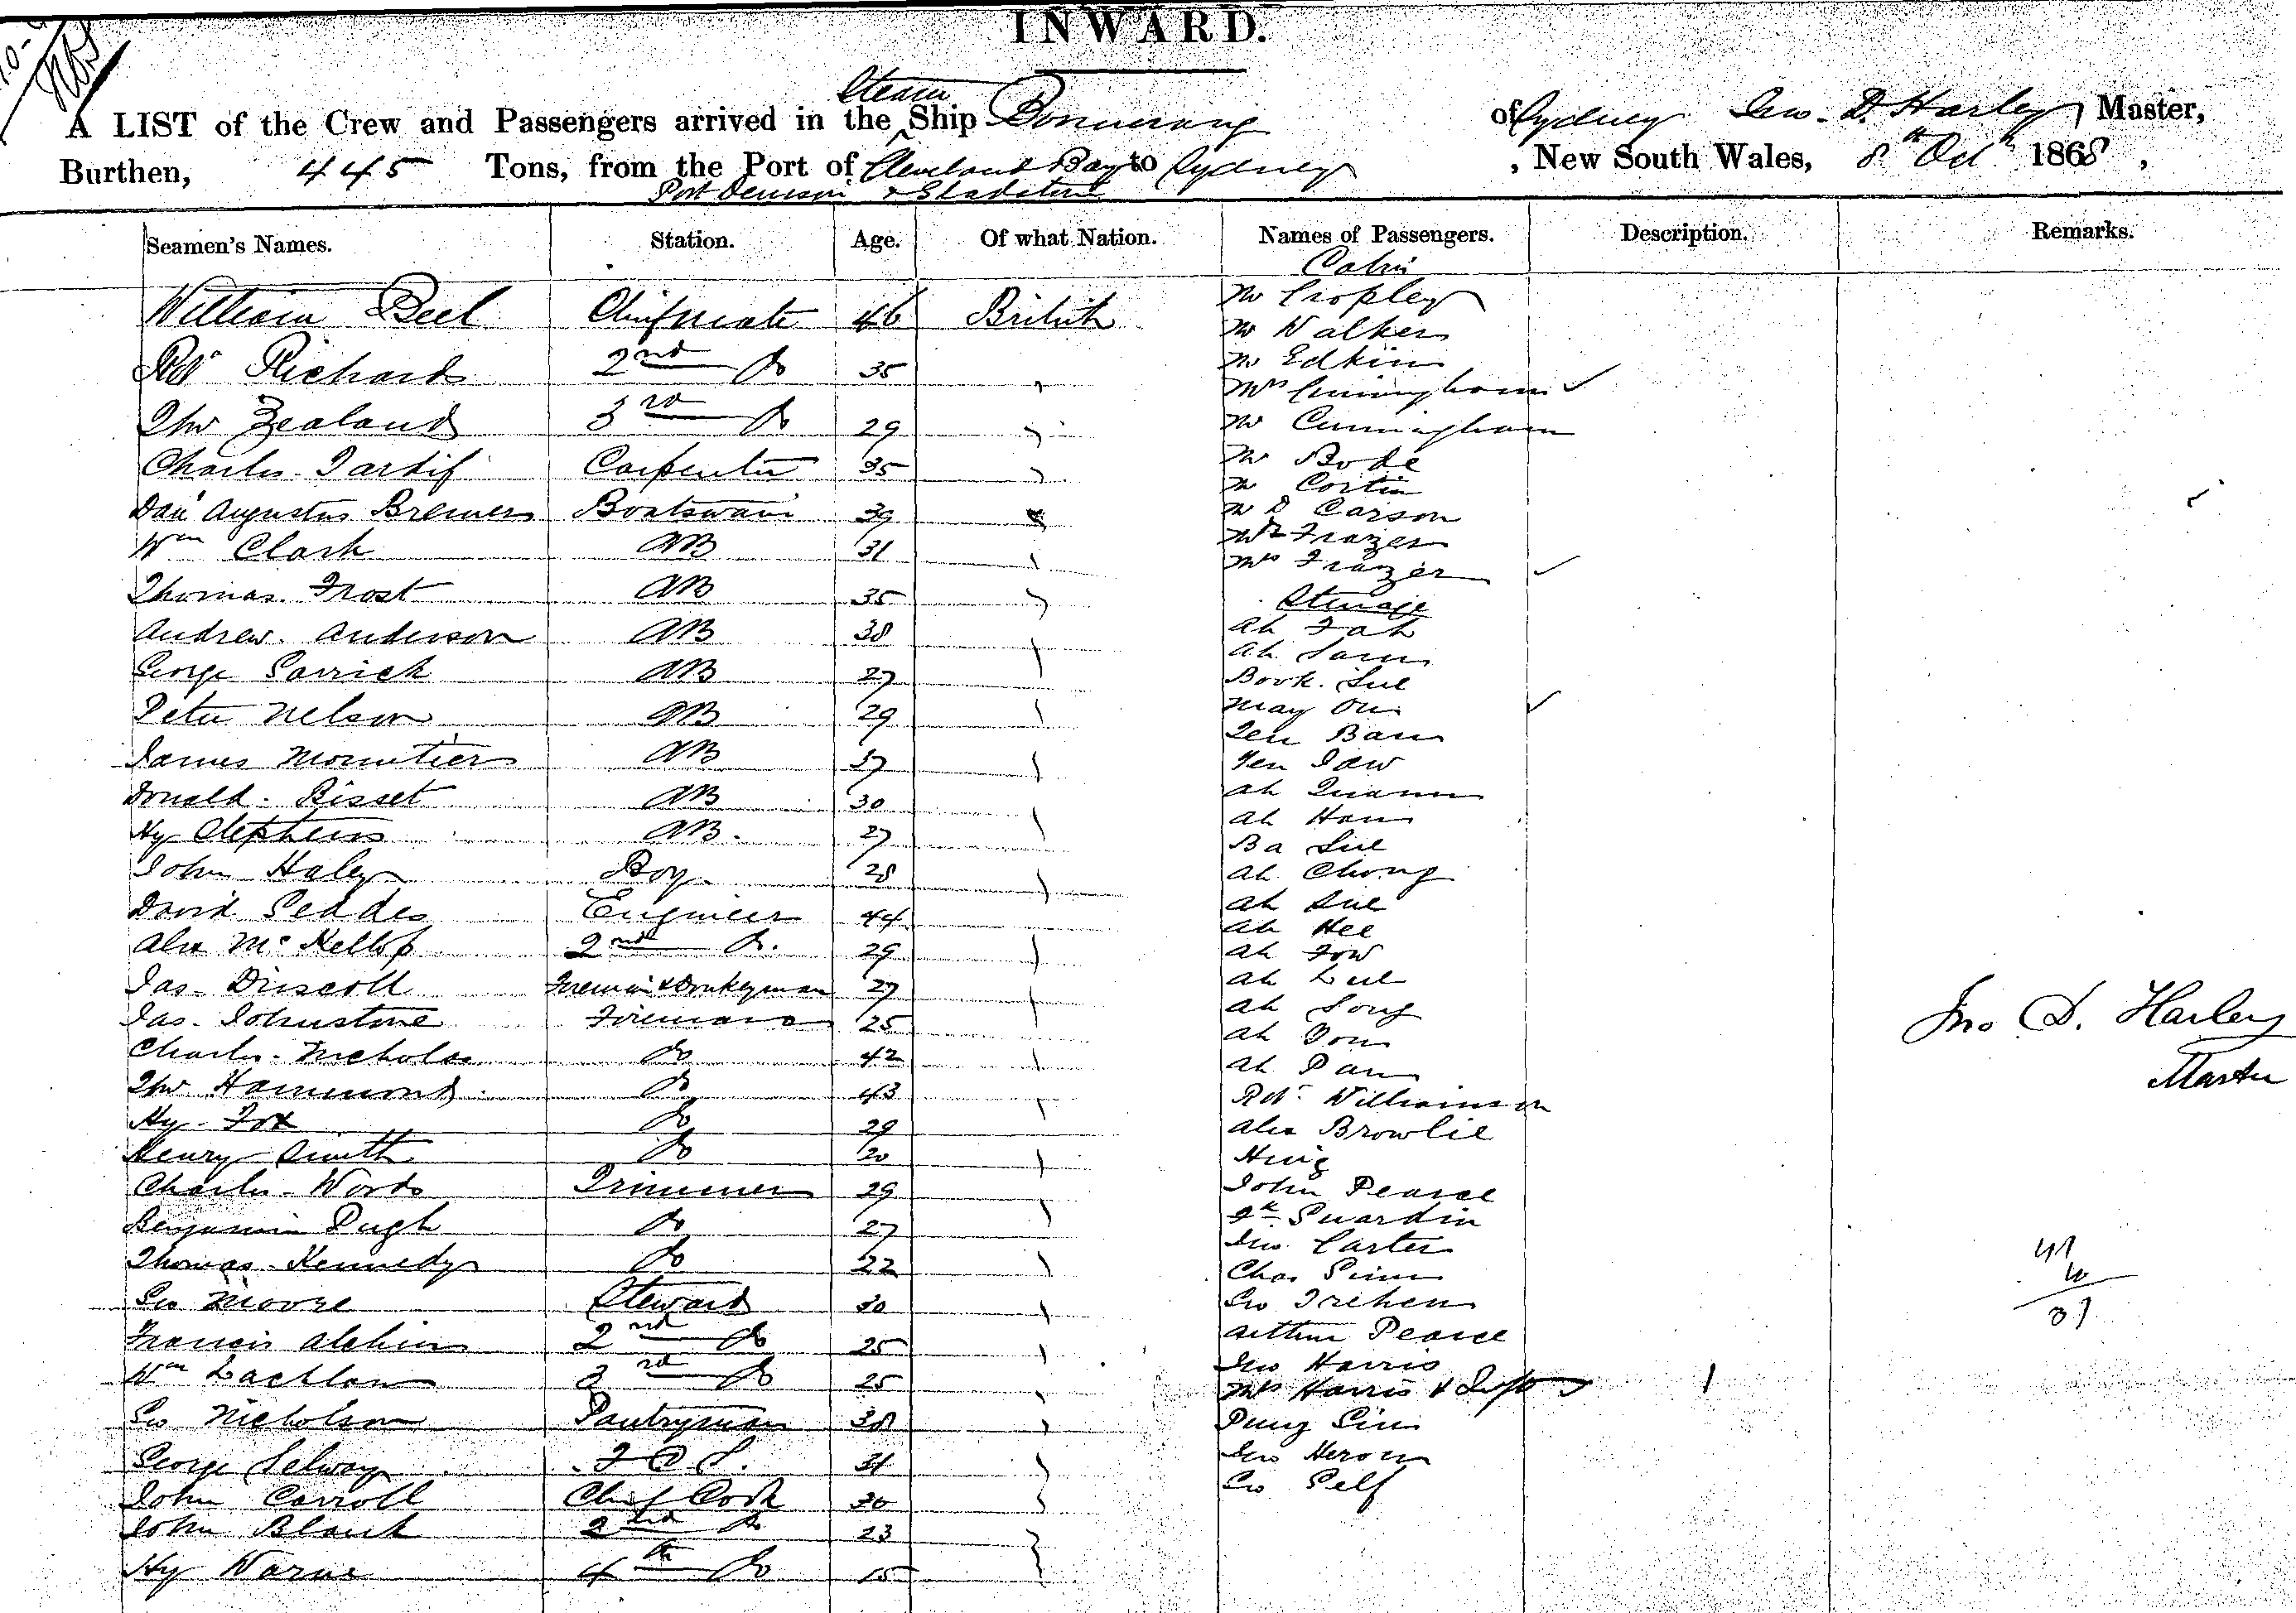 INWARD.
Steam
A LIST of the Crew and Passengers arrived in the Ship Boomerang of Sydney Jno. D. Harley Master,
Burthen, 445 Tons, from the Port of Cleveland Bay to Sydney, New South Wales, 8th Octr 1868,
Port Denison & Gladstone
Seamen's Names. Station. Age. Of what Nation. Names of Passengers. Description. Remarks.
Cabin
William Peel Chief mate 46 British Mr Cropley
Mr Walker
Rdr Richards 2nd Do 35 Mr Edkins
Mrs Cunningham ✓
Thos Zealand 3rd Do 29 Mr Cunningham
Charles Tardif Carpenter 35 Mr Bode
Mr Costin
Danl Augustus Bremer Boatswain 39 Mr D Carson
Wm Clark AB 31 Mr Frazer
Mrs Frazer ✓
Thomas Frost AB 35 Steerage
Andrew Anderson AB 38 Ah Fah
Ah Sam
George AB 27 Book Sue
Peter Nelson AB 29 May On ✓
Bam
James AB 37 Yen
Donald Bisset AB 30 Ah
Hy Stephens AB. 27 Ah Ham
Ba Sue
John Haley Boy 28 Ah Chong
David Geddes Engineer 44 Ah Sue
Ah Hee
Alex McKellop 2nd Do. 29 Ah Fow
Jas Driscoll Fireman & Donkeyman 27 Ah Lue
Jas. Johnstone Fireman 25 Ah Song
Jno D. Harley
Charles Nicholas Do 42 Ah
Ah Pan
Master
Thos Hammond Do 43 Rdt Williamson
Hy Fox Do 29 Alex Browlie
Henry Smith Do 20
Charles Woods Trimmer 29 John Pearce
Benjamin Pugh Do 27 Guardin
Thomas Kennedy Do 22 Jno. Carter
Chas
Geo Moore Steward 30 Geo Trehen
Francis Alchin 2nd Do 25 Arthur Pearce
Wm Lachlan 3rd Do 25 Jno Harris
Mrs Harris & Infts 1
Geo Nicholson Pantryman 38
George Selway 31 Jno Heron
John Carroll Chief Cook 30 Geo Self
John Blank 2nd Do 23
Hy Warne 4th Do 15